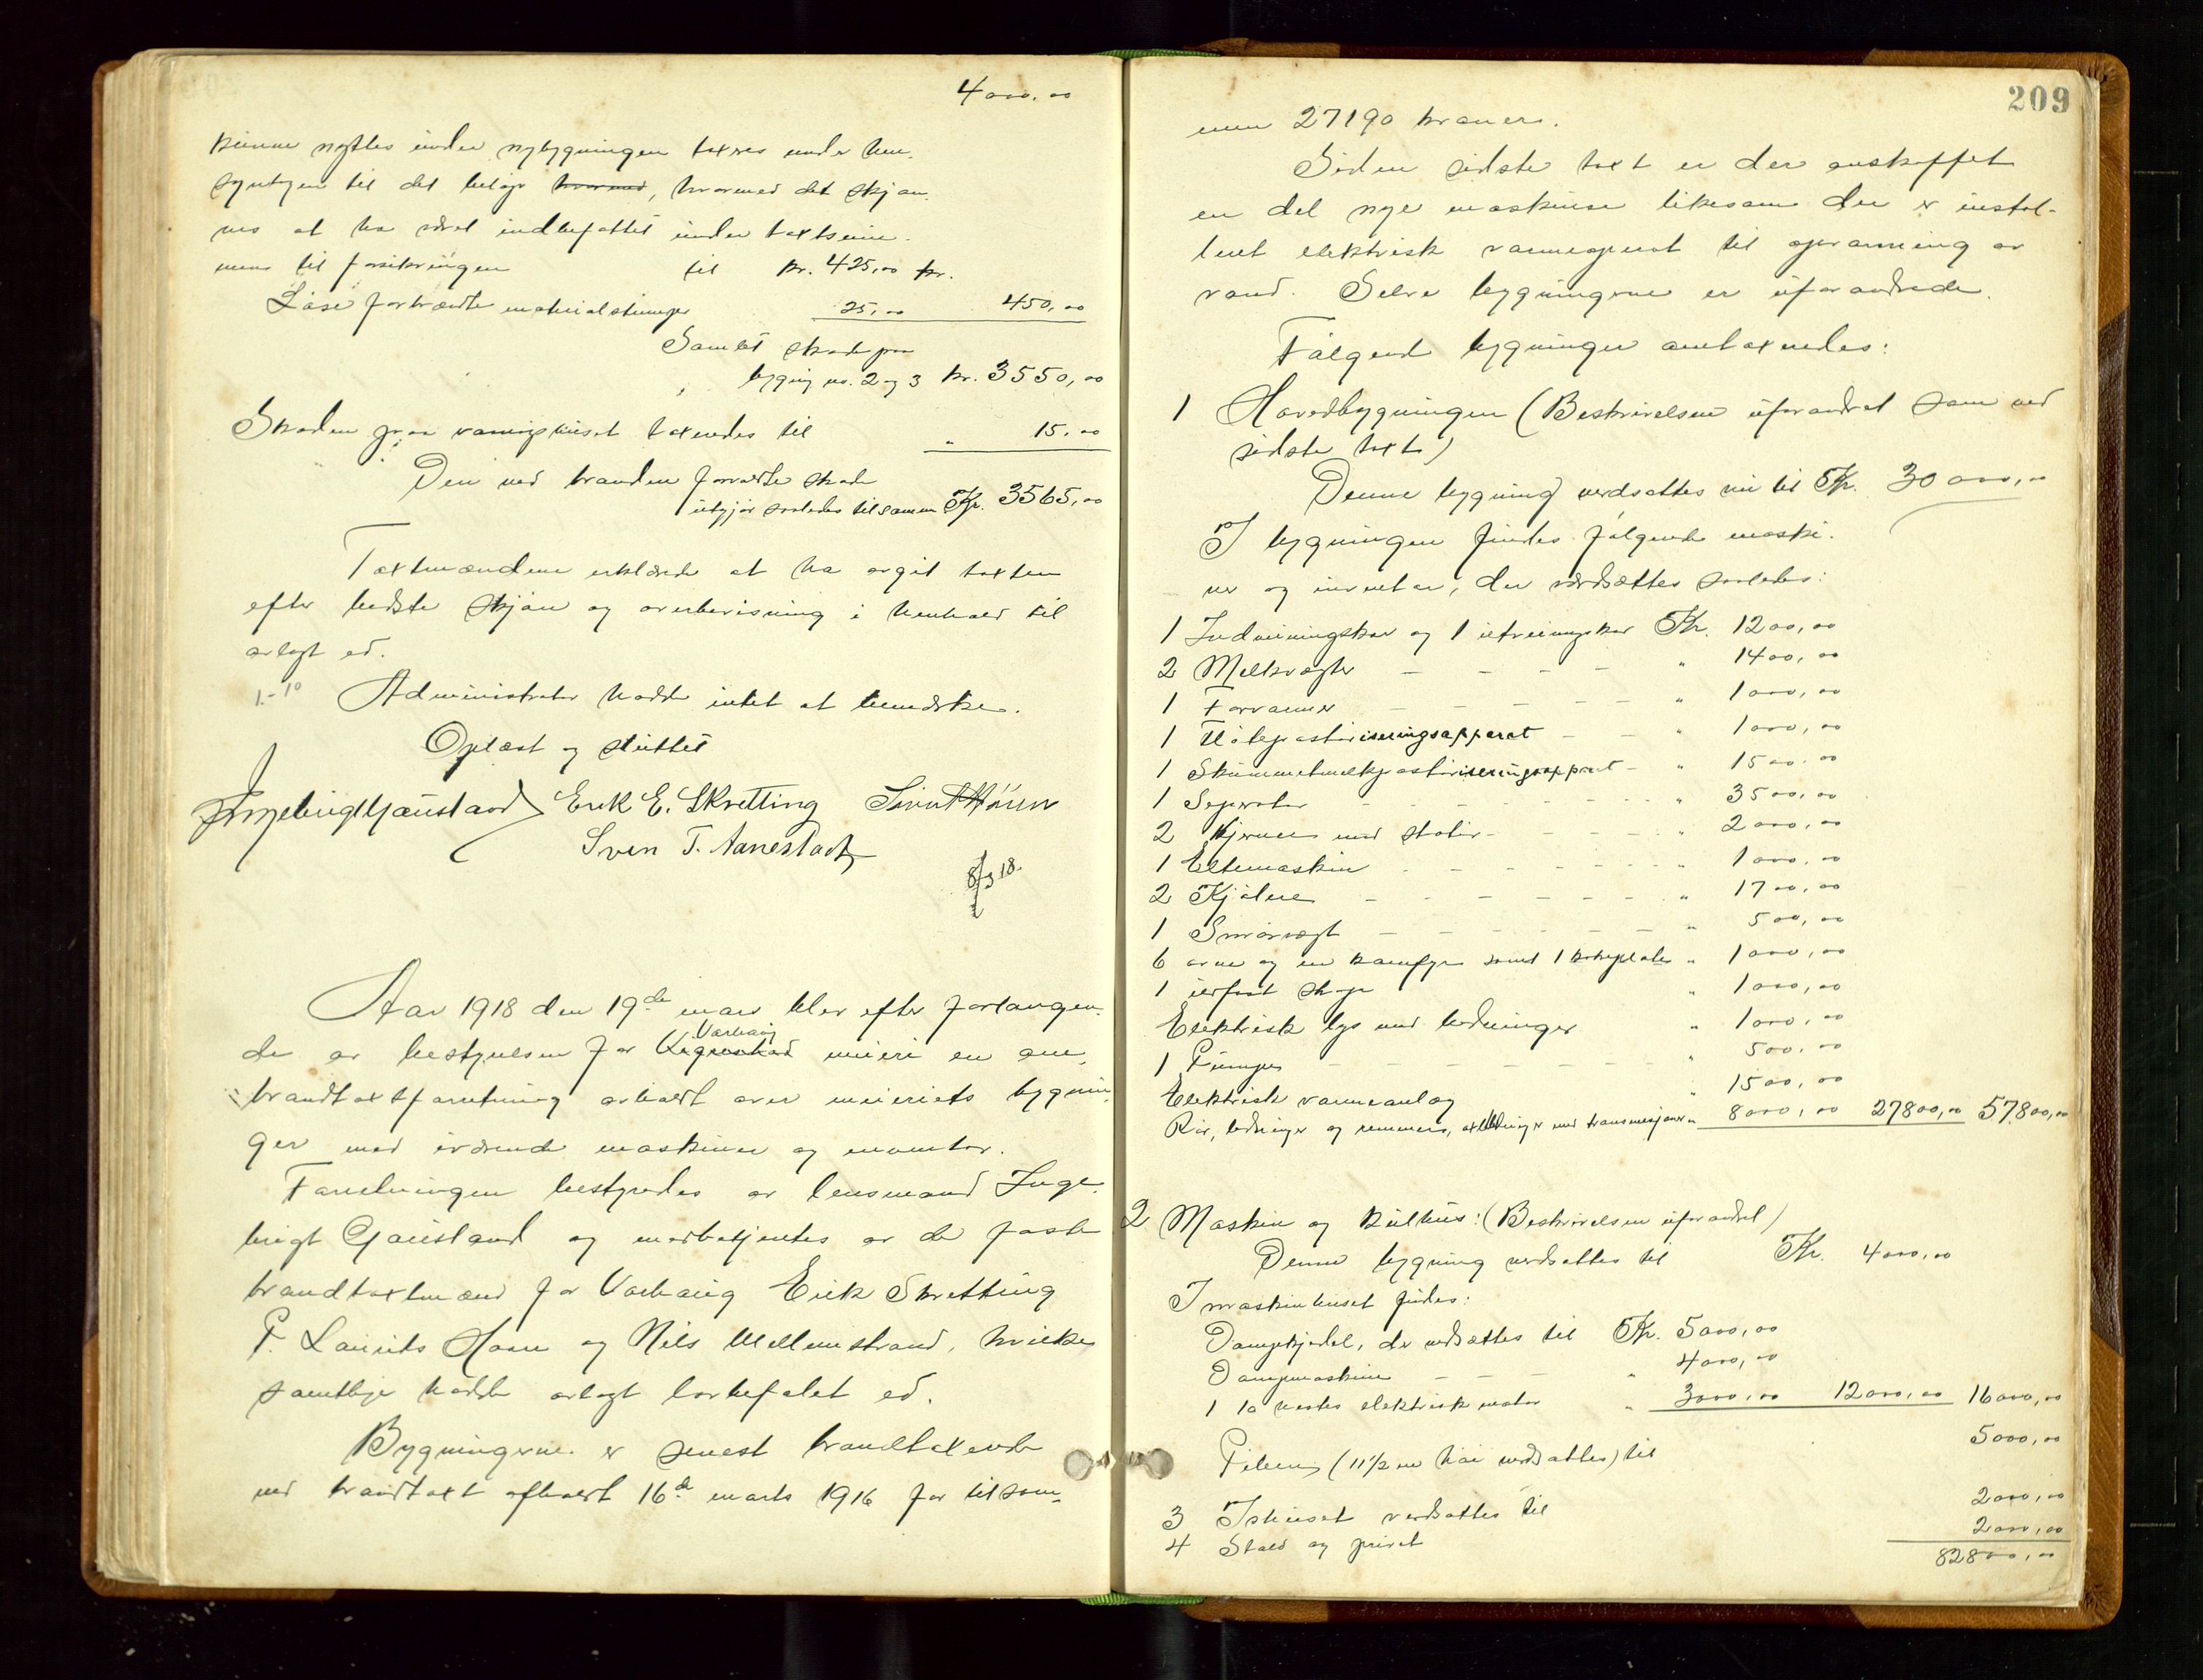 4000,00
kunne nyttes under nybygningen taxeres under hen-
syntagen til det beløp hvormed, hvormed det skjøn-
nes at ha været indbefattet under takstsum-
men til forsikringen til kr. 425,00 kr.
Løse forbrændte materialstumper 25,00 450,00
Samlet skade paa
bygning no. 2 og 3 kr. 3550,00
Skaden paa vaaningshuset taxeredes til " 15,00
Den ved branden forvoldte skade
utgjør saaledes tilsammen Kr. 3565,00
Taxtmændene erklærede at ha avgit taxten
efter bedste skjøn og overbevisning i henhold til
avlagt ed.
1.-10 Administrator hadde intet at bemerke.
Oplæst og sluttet
Ingebrigt Gausland Erik E. Skretting
Sven T. Aanestad
8/3 18.
Aar 1918 den 19de mars blev efter forlangen-
de av bestyrelsen for Varhaug meieri en om-
brandtaxtforretning avholdt over meieriets bygnin-
ger med iværende maskiner og inventar.
Forretningen bestyredes av lensmand Inge-
brigt Gausland og medbetjentes av de faste
brandtaxtmænd for Varhaug Erik Skretting
P. Laurits Haar og Nils Mellemstrand, hvilke
samtlige hadde avlagt lovbefalet ed.
Bygningerne er senest brandtaxerede
ved brandtaxt avholdt 16de marts 1916 for tilsam-
209
men 27190 kroner.
Siden sidste taxt er der anskaffet
en del nye maskiner likesom der er instal-
leret elektrisk varmeapparat til opvarming av
vand. Selve bygningerne er uforandrede.
Følgende bygninger omtaxeredes:
1 Hovedbygningen (Beskrivelsen uforandret som ved
sidste taxt)
Denne bygning verdsættes nu til Kr. 30000,00
I bygningen findes følgende maski-
ner og inventar, der værdsættes saaledes:
1 Indveiningskar og 1 utveiningskar Kr. 1200,00
2 Melkvægter - - - - " 1400,00
1 Forvarmer - - - - - " 1000,00
1 Fløtepastøriseringsapparat - - " 1000,00
1 Skummetmelkpastøriseringsapparat - " 1500,00
1 Seperator - - - - - - " 3500,00
2 Kjerner med stativ - - - - " 2000,00
1 Eltemaskin - - - - - - " 1000,00
2 Kjølere - - - - - - " 1700,00
1 Smørvægt - - - - - - " 500,00
6 ovne og en komfyr samt 1 kokeplate " 1000,00
1 ildfast skap " 1000,00
Elektrisk lys med ledninger " 1000,00
1 Pumpe - - - - - - " 500,00
Elektrisk varmeanlæg " 1500,00
Rør, ledninger og remmer, axelledninger med transmisjoner " 8000,00 27800,00 57800,00
2 Maskin og kulhus: (Beskrivelsen uforandret)
Denne bygning verdsættes til Kr. 4000,00
I maskinhuset findes:
Dampkjedel, der verdsættes til Kr. 5000,00
Dampmaskine - - - " 4000,00
1 10 hestes elektrisk motor " 3000,00 12000,00 16000,00
Pibeen (11 1/2 m høi verdsættes) til 5000,00
3 Ishuset verdsættes til 2000,00
4 Stald og privet 2000,00
82800,00